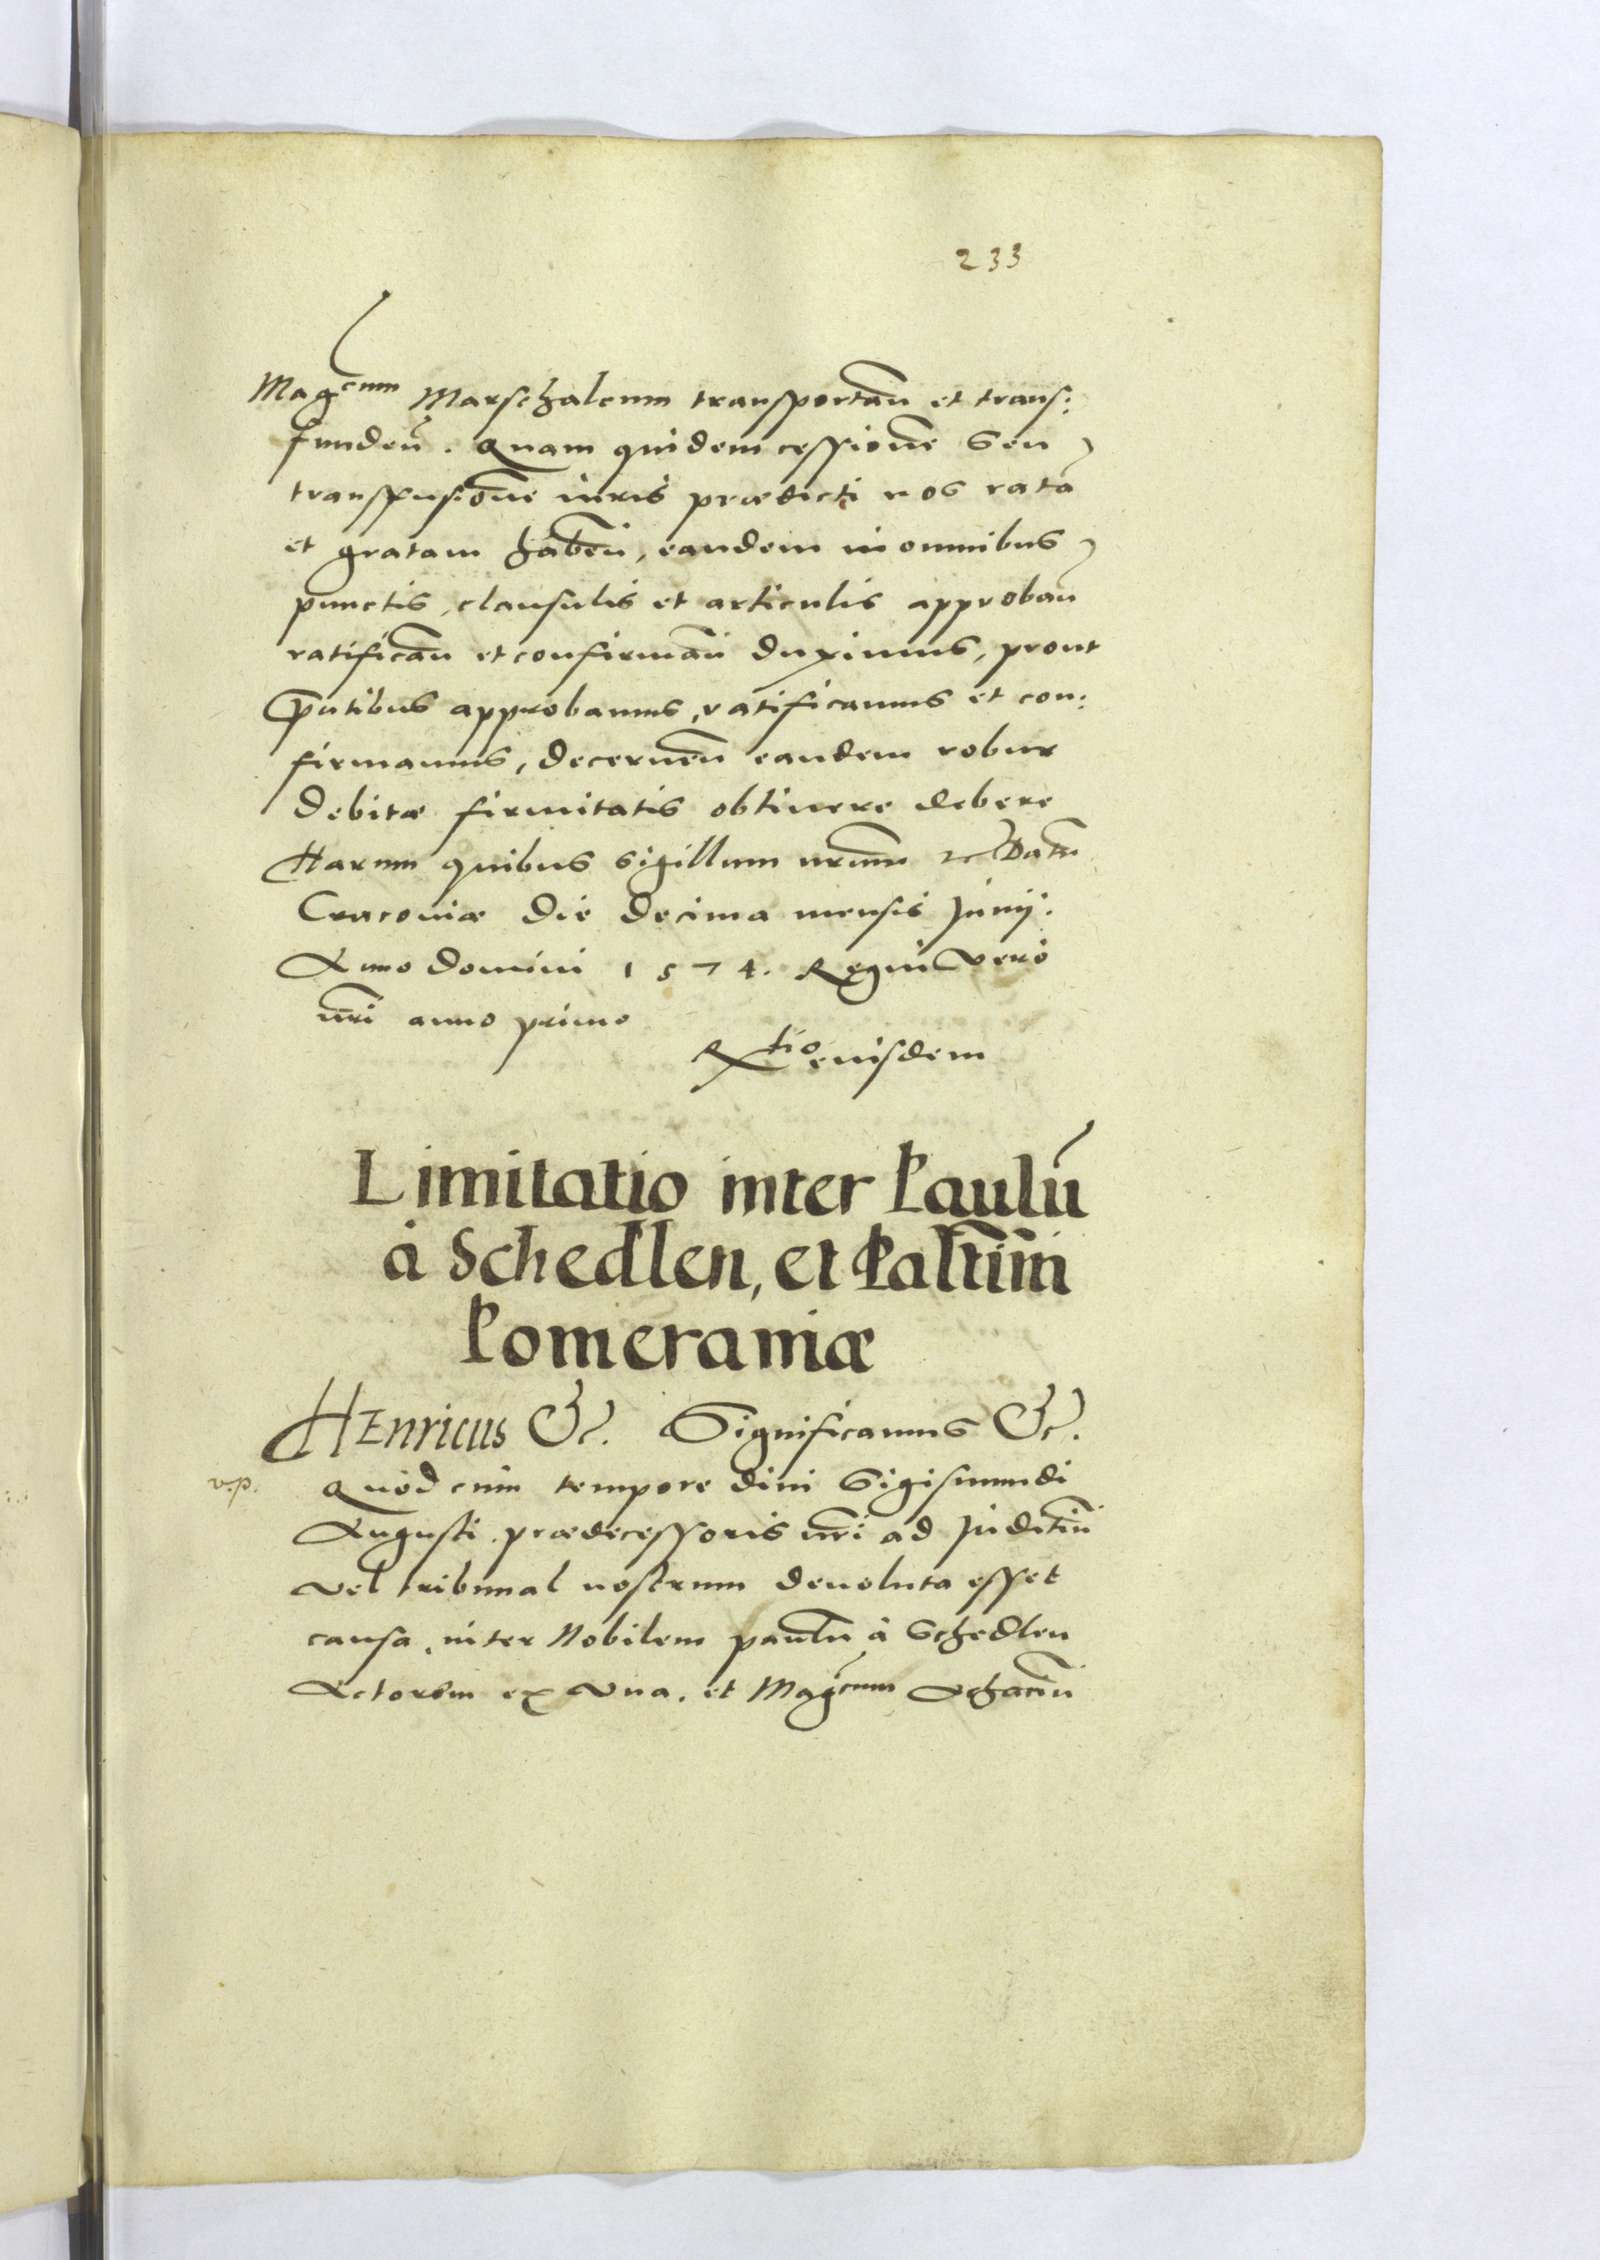 233
Mag̃cum Marschalcum transportañ et trans:
fundeñ. Quam quidem cessionẽ seu
transfusionẽ iuris prædicti nos ratã
et gratam habeñ, eandem in omnibus
punctis, clausulis et articulis approbañ
ratificañ et confirmañ duximus, prout
p̃ntibus approbamus, ratificamus et con:
firmamus, decerneñ eandem robur
debitæ firmitatis obtinere debere
Harum quibus sigillum nr̃um etc Datũ
Cracoviæ die decima mensis Junij.
Anno domini 1574. Regni vero
nr̃i anno primo
R̃tio eiusdem
Limitatio inter Paulũ
à Schedlen, et Palt̃inũ
Pomeraniæ
HEnricus &c. Significamus &c.
v.p. Quod cum tempore divi Sigismundi
Augusti prædecessoris nr̃i ad Juditiũ
vel tribunal nostrum devoluta esset
causa, inter Nobilem paulũ à Schedlen
Actorem ex vna, et Mag̃cum Achaciũ